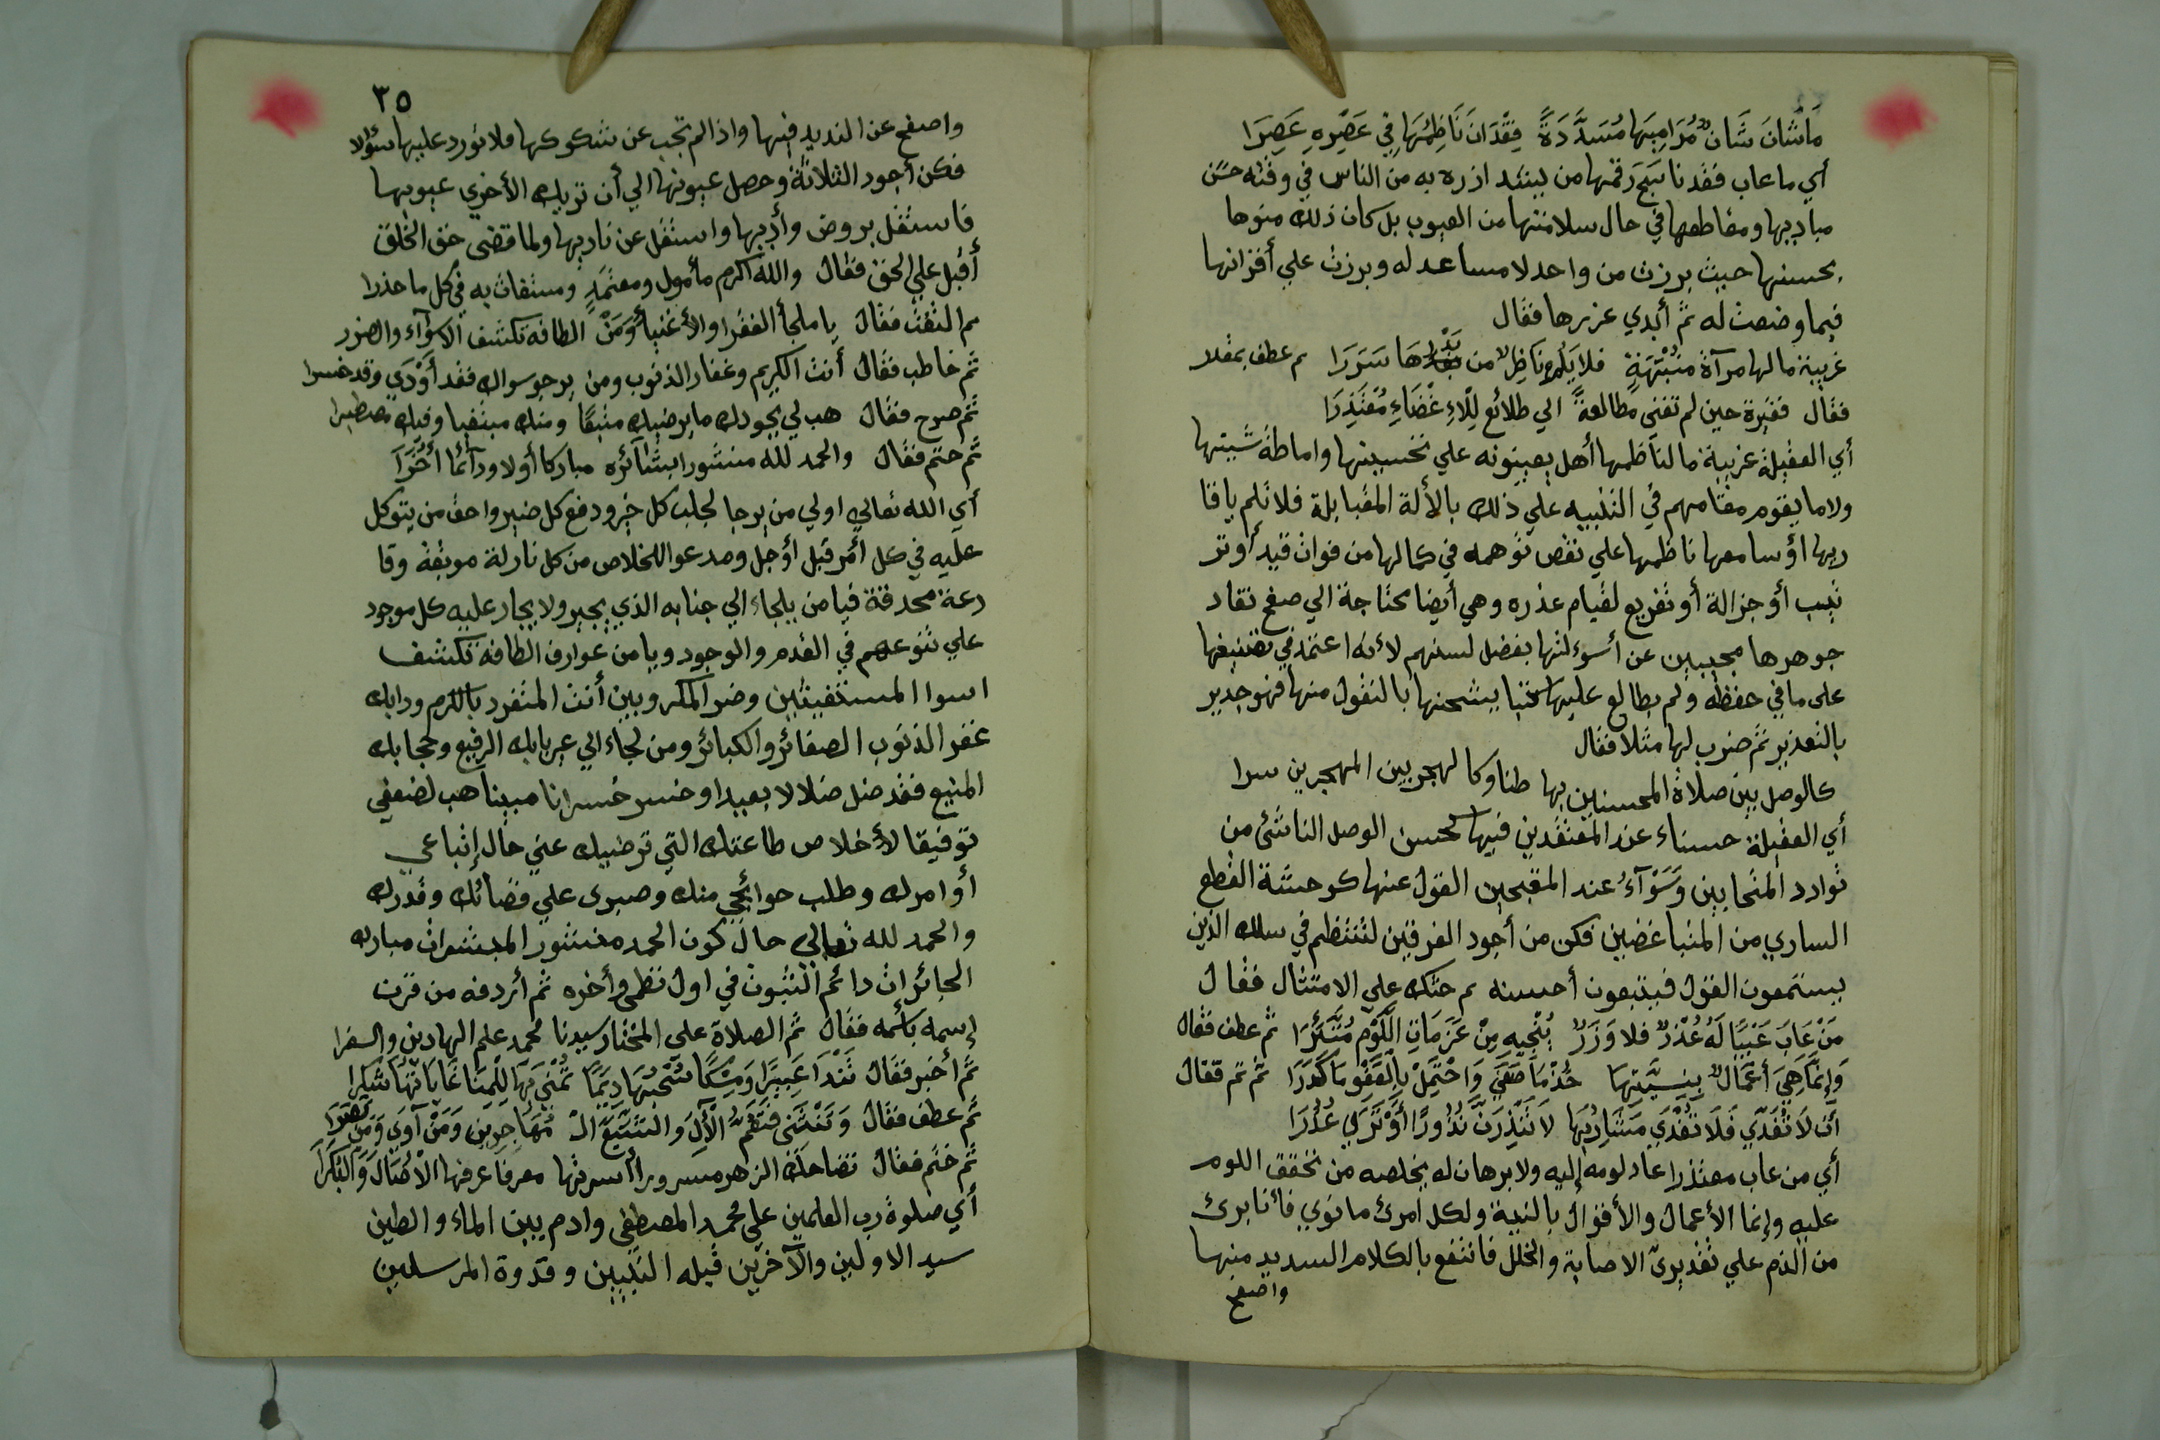 مَاشَانَ شَانٌ مُرَامِيَها مُسَدَّدَةً فِقْدَانَ نَاظِمُهَا فِي عَصْرِهِ عَصِرَا
أي ما عاب ففقد ناسج رقمها من يشد ازره به من الناس في وقته حسن
مباديها ومقاطعها في حال سلامتها من العيوب بل كان ذلك منوها
بحسنها حيث برزت من واحد لا مساعد له وبرزت علي أقرانها
فيما وضعت له ثم أبدي عزرها فقال
غريبة مالها مرآة منبهة فلا يلم ناظر من بدرها سررا ثم عطف بمقلا
فقال فقيرة حين لم تغني مطالعةً الي طلائع للاغضاء مُعْتَذِرَا
أي العقيلة غريبة ما لناظمها أهل يعينونه علي تحسينها واماطة شينها
ولا ما يقوم مقامهم في التنبيه علي ذلك بالألة المقبابلة فلا تلم ياقا
ريها اؤ سامعها ناظمها علي نقص توهمه في كمالها من فوات قيد أوتر
تيب أو جزالة أو تفريع لقيام عذره وهي أيضا محتاجة الي صفح نقاد
جوهرها مجيبين عن أسوء لتها بفضل لسنهم لأنه اعتمد في تصنيفها
على ما في حفظه ولم يطالع عليها كتبا يشحنها بالنقول منها فهو جدير
بالتعذير ثم ضرب لها مثلا فقال
كالوصل بين صلاة المحسنين بها ظنا وكالهجر بين المهجرين سرا
أي العقيلة حسناء عند المعتقدين فيها كحسن الوصل الناشئ من
توادد المتحابين وَسَوْآءُ عند المقبحين القول عنها كوحشة القطع
الساري من المتباغضين فكن من أجود الفرقين لتنتظم في سلك الذين
يستمعون القول فيتبعون أحسنه ثم حثك علي الامتثال فقال
مَنْ عَابَ عَيْبًا لَهُ عُذْرٌ فلا وَزَرٌ يُنْجِيهِ مِنْ عَزَمَاتِ اللَّوْمِ مُتَّئِرَا ثم عطف فقال
وَإِنَّمَا هِيَ أَعْمَالٌ بِنِيَّتِهَا خُذْ مَا صَفَي وَاحْتَمِلْ بِالْعَفْوِ مَا كَدَرَا ثم تم فقال
أن لَا تُقَذِّي فَلَا تُقْذِي مَشَارِبُهَا لَا تَنْذِرَنَّ نُذُورًا أَوْ تَرَي غُدُرَا
أي من عاب معتذرا عاد لومه إليه ولا برهان له يخلصه من تحقق اللوم
عليه وإنما الأعمال والأقوال بالنية ولكل امرئ ما نوي فأنا برئ
من الذم علي تقديرى الاصابة والخلل فانتفع بالكلام السديد منها
واصفح
٣٥
واصفح عن النديد فيها واذا لم تجب عن شكوكها فلا تورد عليها سؤالا
فكن أجود الثلاثة وحصل عيونها الي أن تريك الأخري عيوبها
فاستقل بروض وأديها واستقل عن ناديها ولما قضى حق الخلق
أقبل علي الحق فقال والله أكرم مأمول ومعتمَدٍ ومستغاث به في كل ما حذرا
ثم التفت فقال يا ملجأ الفقرا والأغنياُ ومَنْ الطافه تكشف الاسوٓاء والضرر
ثم خاطب فقال أنت الكريم وغفار الذنوب ومن يرجو سواك فقد أَوْدَي وقد خسرا
ثم صرح فقال هب لي بجودك ما يرضيك متبعًا ومنك مبتغيا وفيك مصطبرا
ثم ختم فقال والحمد لله منشورا بشآئره مباركا أولا ودآئما أُخَرَآ
أي الله تعالي اولي من يرجا لجلب كل خير ودفع كل ضير واحق من يتوكل
عليه في كل أمر قبل أؤجل ومدعوا للخلاص من كل نازلة موبقة وقا
رعة محدقة فيا من يلجاء الي جنابه الذي يجير ولا يجار عليه كل موجود
علي تنوعهم في القدم والوجود ويا من عوارف الطافه تكشف
اسوا المستغيثين وضر المكروبين أنت المتفرد بالكرم ودابك
غفر الذنوب الصغائر والكبائر ومن لجاء الي عير بابك الرفيع وحجابك
المنيع فقد ضل ضلالا بعيدا وخسر خسرانا مبينا هب لضعفي
توفيقا لأخلاص طاعتك التي ترضيك عني حال إتباعي
أوامرك وطلب حوائجي منك وصبرى علي قضائك وقدرك
والحمد لله تعالي حال كون الحمد منشور المبشرات مبارك
الجائزات دائم الثبوت في اول نظمي وأخره ثم أردفه من قرن
إسمه بأسمه فقال ثم الصلاة على المختار سيدنا محمد علم الهادين والسفرا
ثم أخبر فقال تَنْدَا عَبِيرًا وَمِسْكًا سُحْبُهَا دِيَمًا تُمْنَي بِهَا لِلْمِنَا غَايَاتُهَا شُكِرا
ثم عطف فقال وَتَنْثَنِي فَتَعُمَّ الْأَلَ وَالتَّشَيُّعَ الْ مُهَاجِرِين وَمَنْ آوَي وَمَنْ نَصَرَوا
ثم ختم فقال تضاحك الزهر مسرورا أسرتها معرفا عرفها الْأصَالَ وَالْبُكَرَا
أي صلوة رب العلمين علي محمد المصطفى وادم بين الماء والطين
سيد الاولين والآخرين قبله النبيين وقدوة المرسلين